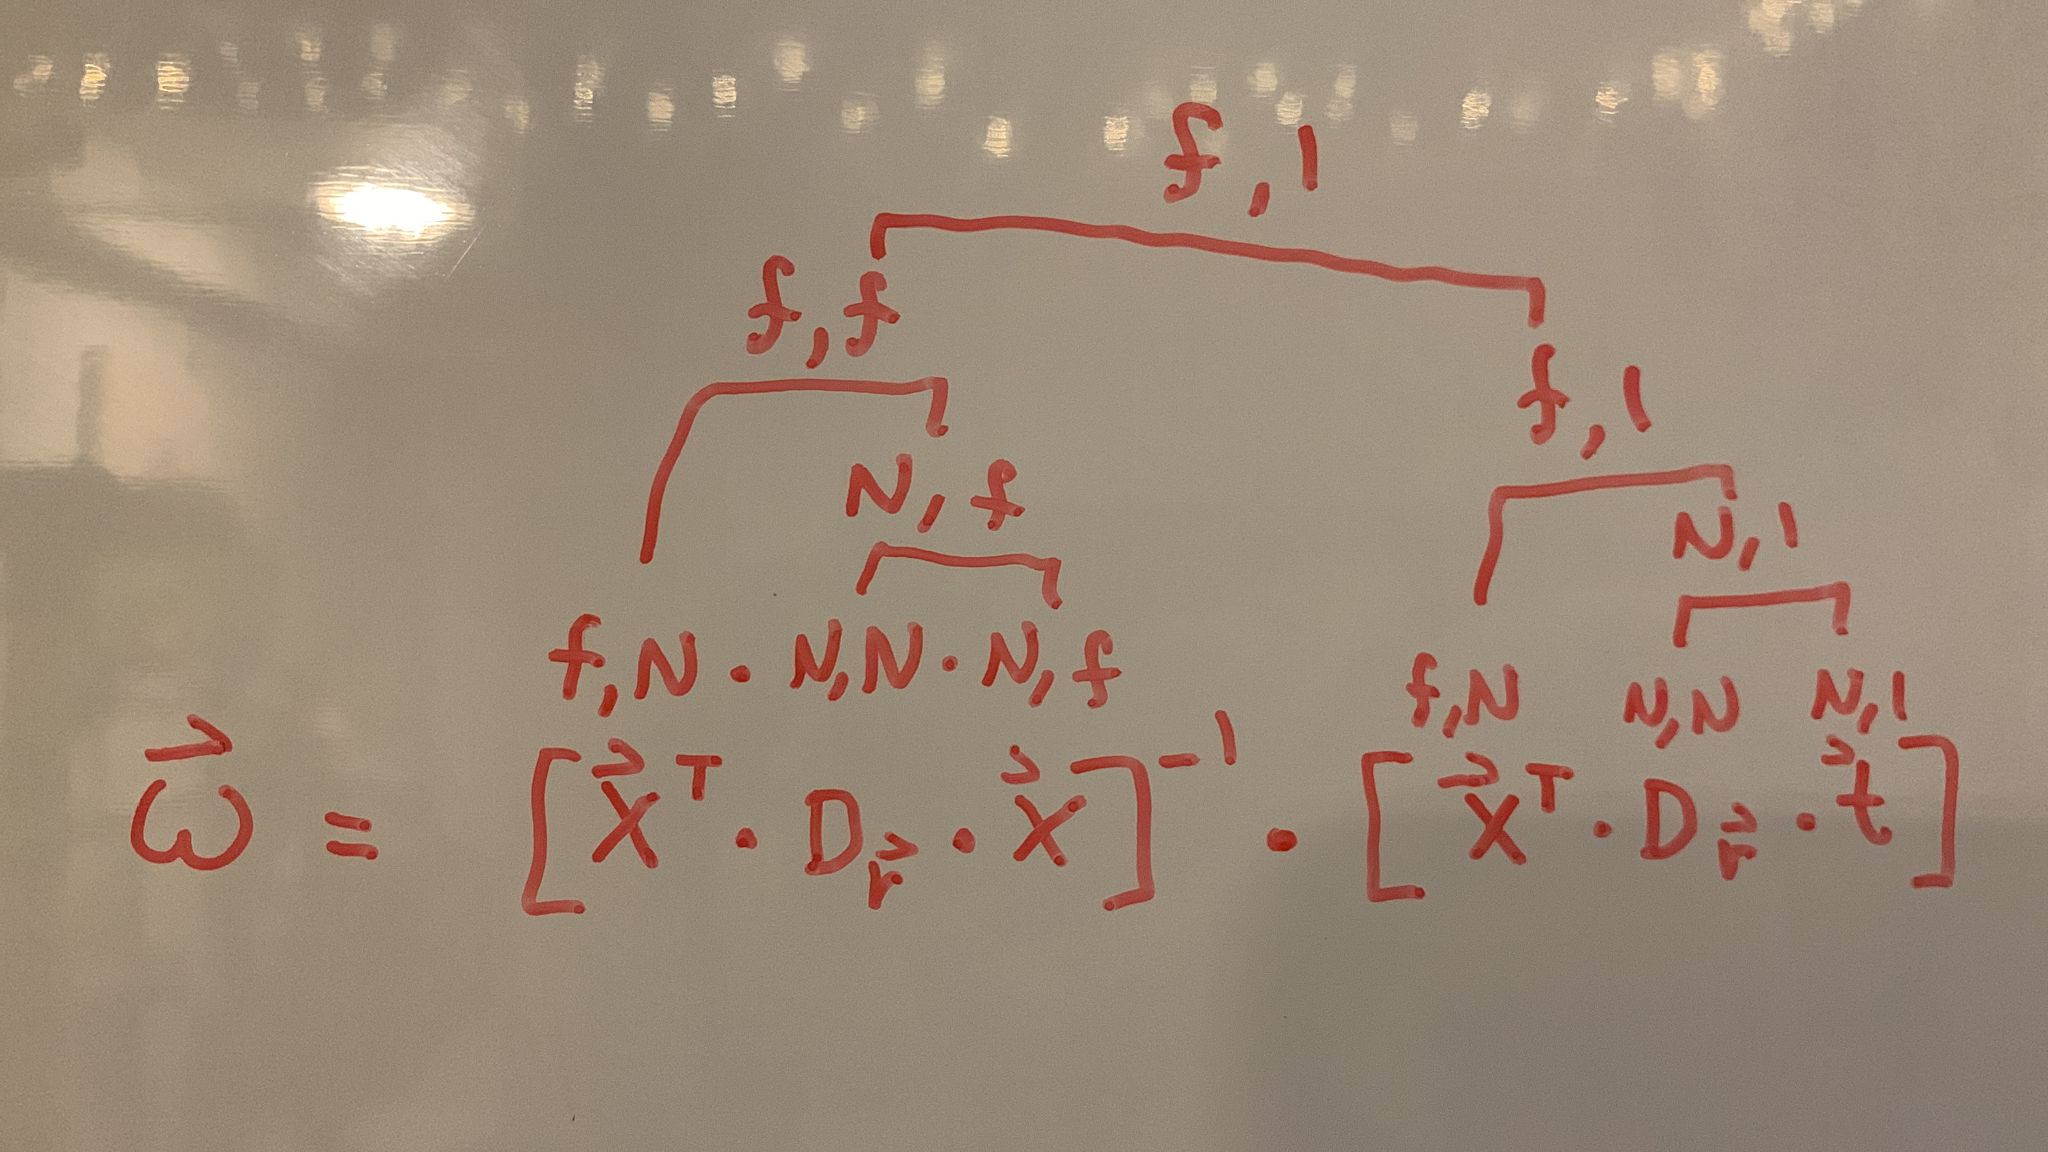 f,1
f,f
f,1
N,f
N,1
f,N · N,N · N,f f,N N,N N,1
ω⃗ = [X⃗ᵀ · D_r⃗ · X⃗]⁻¹ · [X⃗ᵀ · D_r⃗ · t⃗]